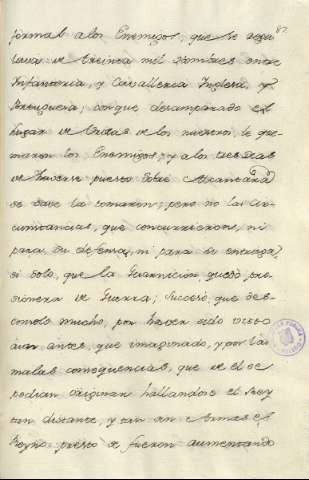 82
formal a los Enemigos, que se
de treinta mil hombres entre
Infanteria, y Cavalleria Inglesa, y
Portuguesa; conque desamparado el
lugar de Brotas de los nuestros, le que-
maron los Enemigos, y a los diez dias
de haverse puesto sobre Alcantara
se save la tomaron; pero no las cir-
cunstancias, que concurrieron, ni
para su defensa, ni para su entrega,
si solo, que la Guarnicion quedó pri-
sionera de Guerra; Succeso, que des-
consoló mucho, por haver sido
aun antes, que imaginado, y por las
malas consequencias, que de el se
podian originar hallandose el Rey
tan distante, y tan sin Armas el
Reyno presto se fueron aumentando